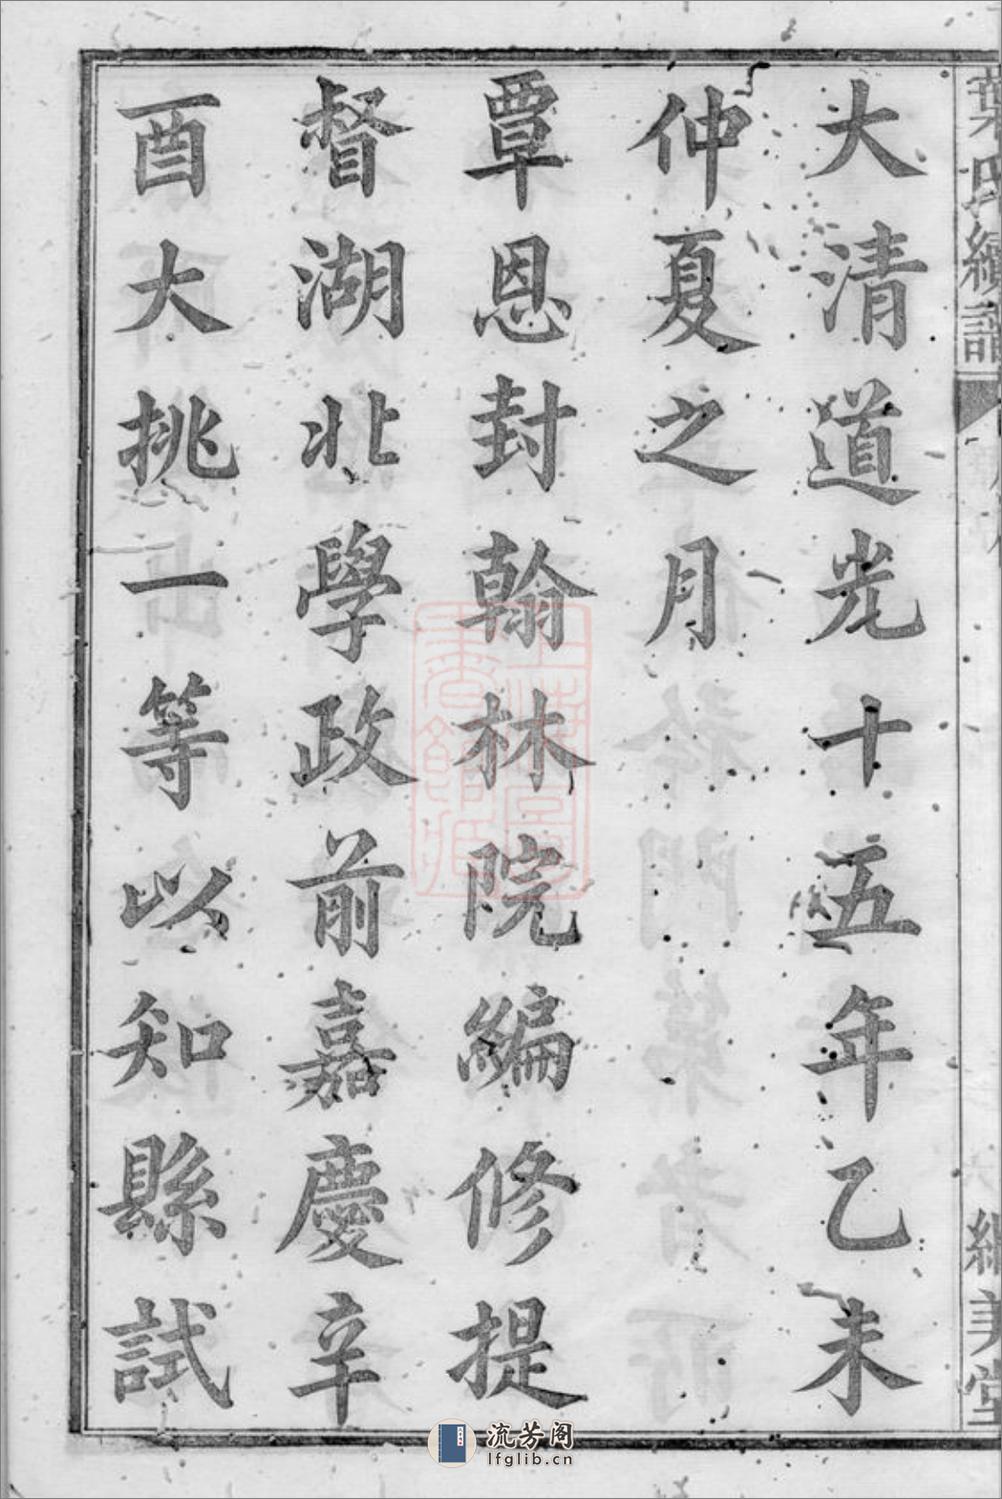 大清道光十五年乙未
仲夏之月
覃恩封翰林院編修提
督湖北學政前嘉慶辛
酉大挑一等以知縣試
葉氏續譜
美堂
流芳阁
lfglib.cn